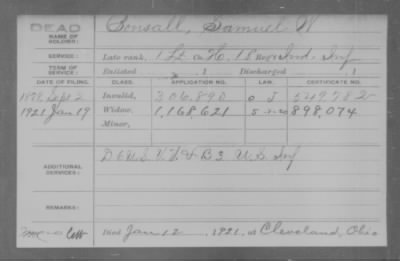 DEAD
NAME OF SOLDIER: Bonsall, Samuel W
SERVICE: Late rank, 1 Lt Co H, 18 Reg't Ind. Inf
TERM OF SERVICE: Enlisted , 1 Discharged , 1
DATE OF FILING. CLASS. APPLICATION NO. LAW. CERTIFICATE NO.
1878 Sept 2 Invalid, 306,890 549,782
1921 Jan 19 Widow, 1,168,621 898,074
Minor,
ADDITIONAL SERVICES: D 6 U.S. V.V. & B 3 U.S. Inf
REMARKS:
Died Jan 12, 1921, at Cleveland, Ohio